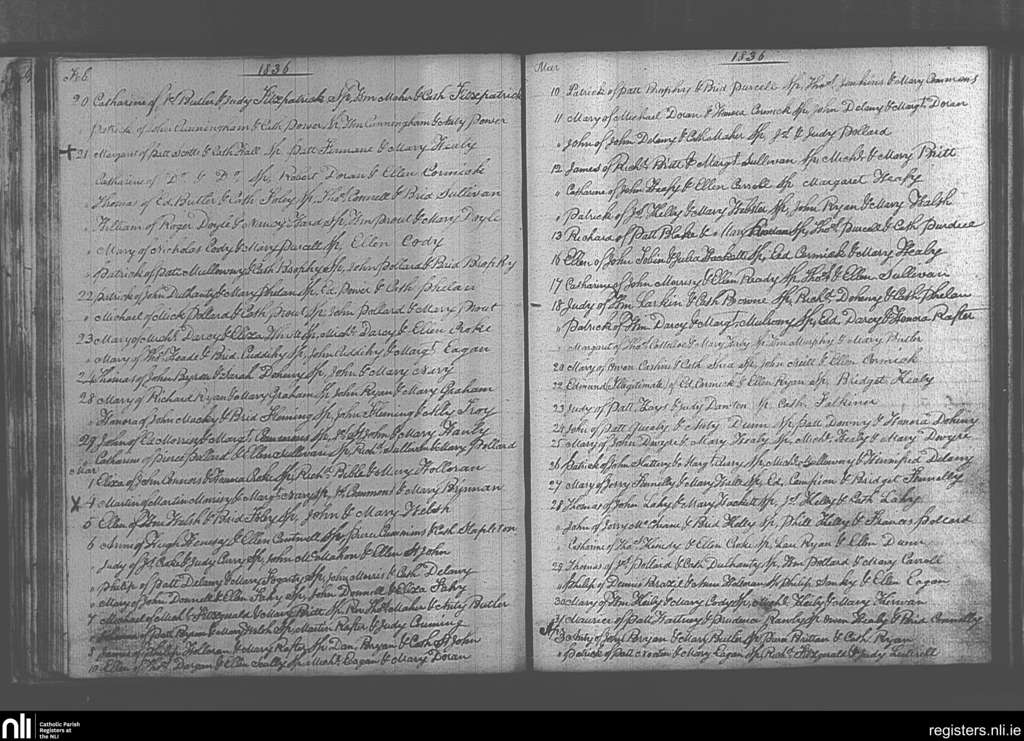 Feb
1836
20 Catharine of Jas Butler & Judy Fitzpatrick Sp, Wm Maher & Cath Fitzpatrick
Patrick of John Cunningham & Cath Power Sp Wm Cunningham & Power
21 Margaret of Patt Scott & Cath Hall Sp, Patt & Mary Healy
Catharine of Do & Do Sp, Robert Doran & Ellen Cormick
" Thomas of Ed Butler & Cath Foley Sp, Thos Connell & Brid Sullivan
" William of Roger Doyle & Nancy Sp, Wm Prout & Mary Doyle
" Mary of Nicholas Cody & Mary Purcell Sp, Ellen Cody
" Patrick of Patt Mullowny & Cath Brophy Sp, John Pollard & Brid Brophy
22 Patrick of John Duthanty & Mary Phelan Sp, Ed Power & Cath Phelan
" Michael of Mick Pollard & Cath Prout Sp, John Pollard & Mary Prout
23 Mary of Michl Darcy & Eliza Sp, Michl Darcy & Ellen Croke
" Mary of Thos Heade & Brid Cuddihy Sp, John Cuddihy & Margt Eagan
24 Thomas of John Byrne & Sarah Doheny Sp, John & Mary
28 Mary of Richard Ryan & Mary Graham Sp, John Ryan & Mary Graham
" Honora of John Mackey & Brid Fleming Sp, John Fleming & Ally Troy
29 John of Ed Morris & Margt Cummins Sp, St John & Mary Hanly
" Catharine of Pierce Pollard & Ellen Sullivan Sp, Richd Sullivan & Mary Pollard
Mar
1 Eliza of John Connors & Honora Sp, Richd & Mary Holloran
4 Martin of Martin Morrisy & Margt Sp, & Mary Brennan
5 Ellen of Wm Walsh & Brid Foley Sp, John & Mary Welsh
6 Anne of Hugh Henesy & Ellen Cantwell Sp, Pierce Cummins & Cath Stapleton
" Judy of Jas Cahel & Judy Curry Sp, John McMahon & Ellen St John
" Philip of Patt Delany & Mary Fogarty Sp, John Morris & Cath Delany
" Mary of John Donnell & Ellen Fahy Sp, John Donnell & Eliza Fahy
7 Michael of Michl Fitzgerald & Mary Britt Sp, Rev Thos Maher & Butler
" of Patt Bryan & Mary Welch Sp, Martin Rafter & Judy Cummins
8 James of Philip Holloran & Mary Rafter Sp, Dan Bryan & Cath St John
10 Ellen of Thos Dargan & Ellen Scully Sp, Michl Eagan & Mary Doran
Mar
1836
10 Patrick of Patt Brophy & Brid Purcell Sp, Thos Jenkins & Mary Cummins
11 Mary of Michael Doran & Honora Cormick Sp, John Delany & Margt Doran
" John of John Delany & Cath Maher Sp, Js & Judy Pollard
12 James of Richd Britt & Margt Sullivan Sp, Michl & Mary Britt
" Catharine of John Heaphy & Ellen Carroll Sp Margaret Healy
" Patrick of Js Kelly & Mary Webster Sp, John Ryan & Mary Walsh
13 Richard of Patt Blake & Mary Sp, Thos Purcell & Cath Purdue
16 Ellen of John Tobin & Julia Hackett Sp, Ed Cormick & Mary Healy
17 Catharine of John Morrisy & Ellen Ready Sp, Thos & Ellen Sullivan
18 Judy of Wm Larkin & Cath Browne Sp, Richd Doheny & Cath Phelan
" Patrick of Wm Darcy & Margt Mulrony Sp, Ed Darcy & Honora Rafter
" Margaret of Thos Costelloe & Mary Sp Wm Murphy & Mary Butler
20 Mary of Owen Cashin & Cath Sp, John Britt & Ellen Cormick
22 Edmund Illegitimate of Ed Cormick & Ellen Ryan Sp, Bridget Healy
23 Judy of Patt Hays & Judy Dawson Sp, Cath Falkiner
24 John of Patt Quealy & Dunn Sp, Patt Downy & Honora Doheny
25 Mary of John Dwyre & Mary Healy Sp, Michl Healy & Mary Dwyre
26 Patrick of John Hattery & Margt Berry Sp, Michl Mullowny & Winnifred Delany
27 Mary of Jerry Hunelly & Mary Hall Sp, Ed Campion & Bridget Hunelly
28 Thomas of John Lahy & Mary Hackett Sp, Js Kelly & Cath Lahy
" John of Jerry McGuire & Brid Kelly Sp, Phill Kelly & Frances Pollard
" Catharine of Thos Kenedy & Ellen Croke Sp, Lau Ryan & Ellen Dunn
29 Thomas of Wm Pollard & Cath Duthanty Sp, Wm Pollard & Mary Carroll
" Philip of Dennis Brazil & Anne Holloran Sp Philip & Ellen Eagan
30 Mary of Wm Haily & Mary Cody Sp, Hugh Haily & Mary Kirwan
31 Maurice of Patt Hattery & Prudence Hawly Sp Owen Healy & Brid Connolly
Ap. 3 of John Bryan & Mary Butler Sp, Brittan & Cath Ryan
" Patrick of Patt & Mary Eagan Sp, Richd Fitzgerald & Judy
nli
Catholic Parish
Registers at
the NLI
registers.nli.ie